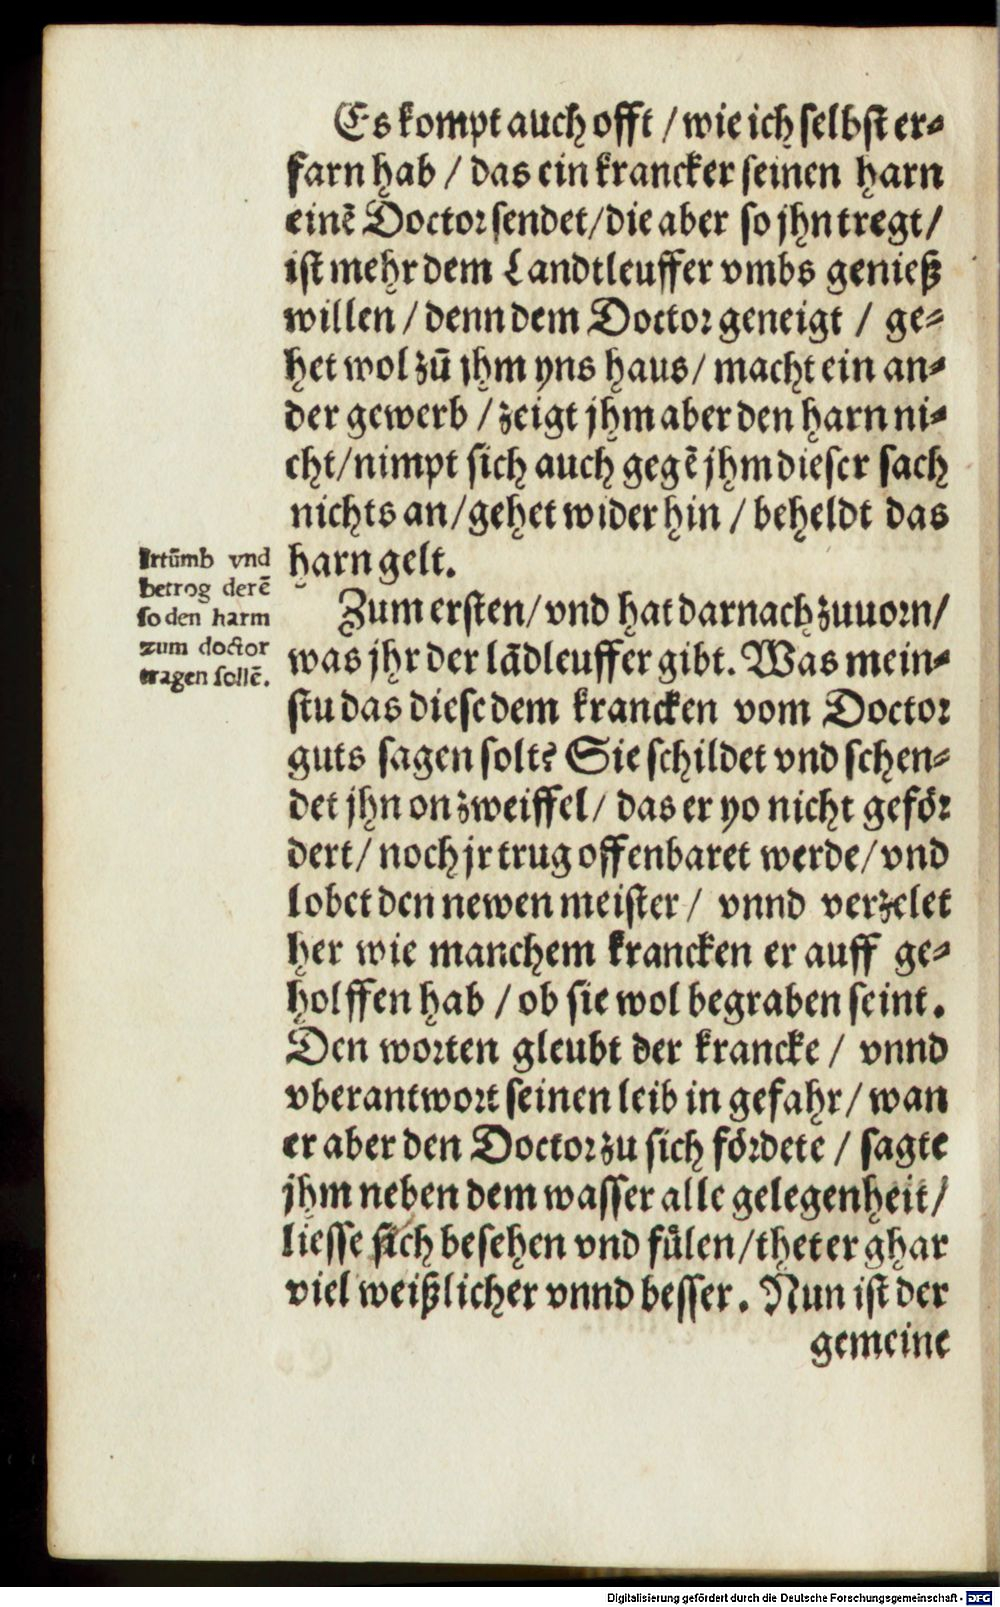 Es kompt auch offt / wie ich selbst er-
farn hab / das ein krancker seinen harn
einē Doctor sendet/die aber so jhn tregt/
ist mehr dem Landtleuffer vmbs genieß
willen / denn dem Doctor geneigt / ge-
het wol zū jhm yns haus/ macht ein an-
der gewerb / zeigt jhm aber den harn ni-
cht/nimpt sich auch gegē jhm dieser sach
nichts an/gehet wider hin / beheldt das
harn gelt.
Irtūmb vnd
betrog derē
so den harm
zum doctor
tragen sollē.
Zum ersten/ vnd hat darnach zuuorn/
was jhr der lādleuffer gibt. Was mein-
stu das diese dem krancken vom Doctor
guts sagen solt? Sie schildet vnd schen-
det jhn on zweiffel/ das er yo nicht geför
dert/ noch jr trug offenbaret werde/ vnd
lobet den newen meister/ vnnd verzelet
her wie manchem krancken er auff ge-
holffen hab / ob sie wol begraben seint.
Den worten gleubt der krancke/ vnnd
vberantwort seinen leib in gefahr/ wan
er aber den Doctor zu sich fördete / sagte
jhm neben dem wasser alle gelegenheit/
liesse sich besehen vnd fülen/thet er ghar
viel weißlicher vnnd besser. Nun ist der
gemeine
Digitalisierung gefördert durch die Deutsche Forschungsgemeinschaft - DFG